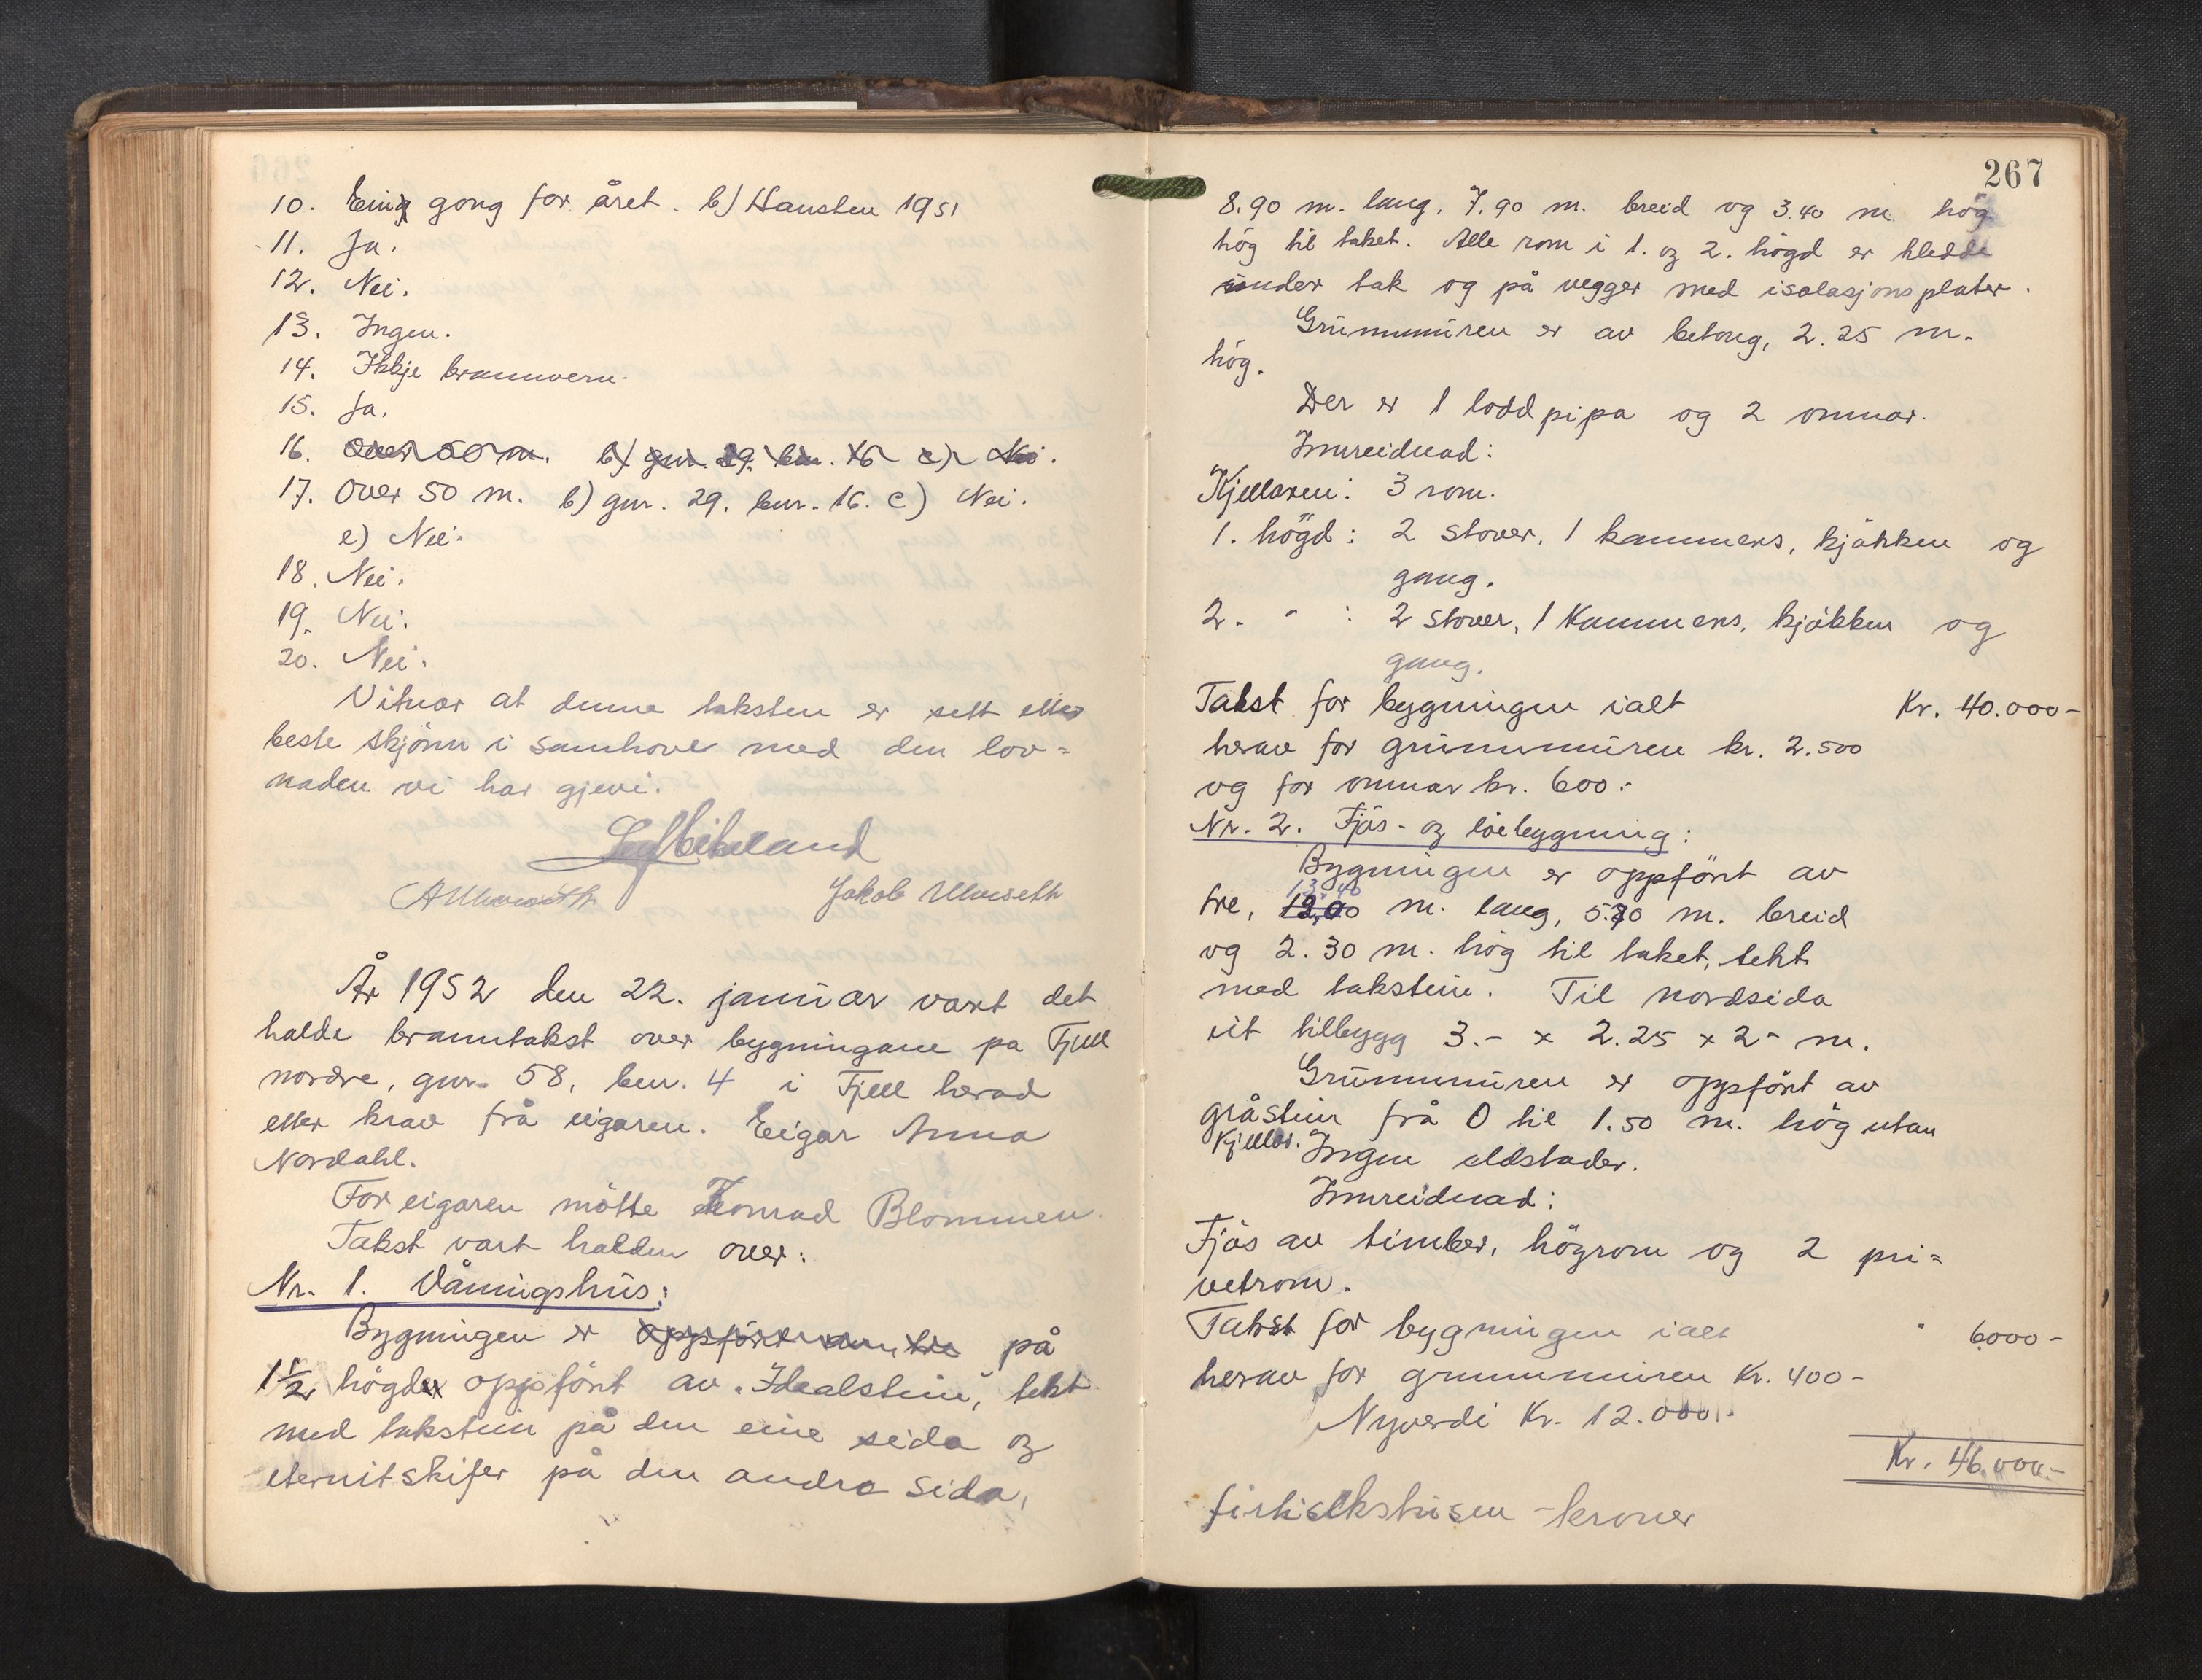 10. Ein gong for året. b) Hausten 1951
11. Ja.
12. Nei.
13. Ingen.
14. Ikkje brannvern.
15. Ja.
16. Over 50 m. b) gnr. 29. bnr. 16 c) Nei.
17. Over 50 m. b) gnr. 29. bnr. 16. c) Nei.
e) Nei.
18. Nei.
19. Nei.
20. Nei.
Vitnar at denne taksten er sett etter
beste skjönn i samhove med den lov=
naden vi har gjevi.
Jakob Ulveseth
År 1952 den 22. januar vart det
halde branntakst over bygningane på Fjell
nordre, gnr. 58, bnr. 4 i Fjell herad
etter krav frå eigaren. Eigar Anna
Nordahl.
For eigaren mötte Konrad Blommen.
Takst vart halden over:
Nr. 1. Våningshus:
Bygningen er oppfört av tre på
1½ högd oppfört av "Idealstein", tekt
med takstein på den eine sida og
eternitskifer på den andre sida,
267
8.90 m. lang, 7.90 m. breid og 3.40 m hög
hög til taket. Alle rom i 1. og 2. högd er kledde
under tak og på vegger med isolasjonsplater.
Grunnmuren er av betong, 2.25 m.
hög.
Der er 1 loddpipa og 2 omnar.
Innreidnad:
Kjellaren: 3 rom.
1. högd: 2 stover, 1 kammers, kjökken og
gang.
2. " : 2 stover, 1 kammers, kjökken og
gang.
Takst for bygningen ialt Kr. 40.000-
herav for grunnmuren kr. 2.500
og for omnar kr. 600:-
Nr. 2. Fjös- og löebygning:
Bygningen er oppfört av
13.40
tre, m. lang, 5.70 m. breid
og 2.30 m. hög til taket, tekt
med takstein. Til nordsida
eit tilbygg 3.- x 2.25 x 2- m.
Grunnmuren er oppfört av
gråstein frå 0 til 1.50 m. hög utan
kjellar. Ingen eldstader.
Innreidnad:
Fjös av timber, högrom og 2 pri=
vetrom.
Takst for bygningen ialt " 6000-
herav for grunnmuren Kr. 400-
Nyverdi Kr. 12.000.-
Kr. 46.000.-
firtisekstusen - kroner